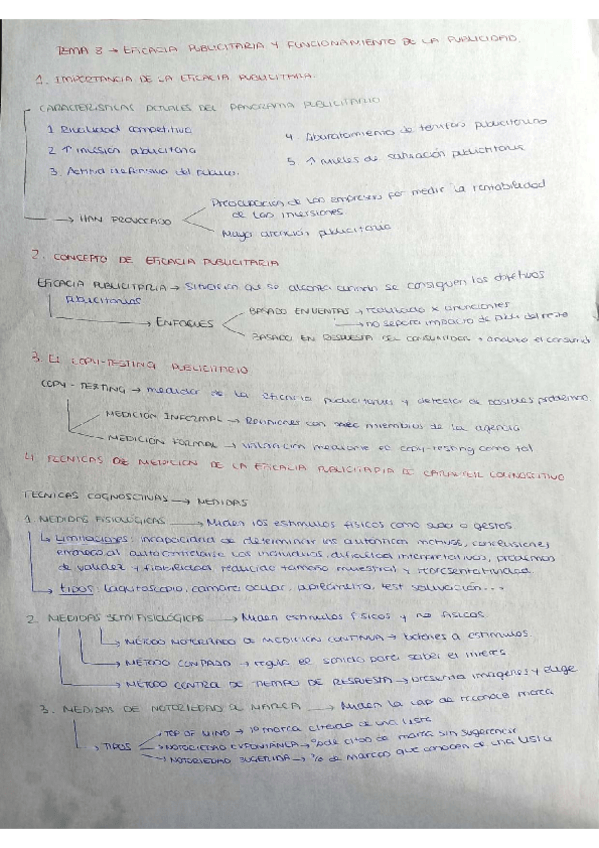 TEMA 8 → EFICACIA PUBLICITARIA Y FUNCIONAMIENTO DE LA PUBLICIDAD.
1. IMPORTANCIA DE LA EFICACIA PUBLICITARIA.
CARACTERISTICAS ACTUALES DEL PANORAMA PUBLICITARIO
1 Rivalidad competitiva
4 Abaratamiento de tarifas publicitarias
2 ↑ inversion publicitaria
5 ↑ niveles de saturación publicitaria
3. Actitud
→ HAN PROVOCADO
Preocupacion de las empresas por medir la rentabilidad
de las inversiones
Mayor atención publicitaria
2. CONCEPTO DE EFICACIA PUBLICITARIA
EFICACIA PUBLICITARIA → Situación que se alcanza cuando se consiguen los objetivos
publicitarios
→ ENFOQUES
BASADO EN VENTAS → resultado x anunciantes
→ no separa impacto de publi del resto
BASADO EN RESPUESTA DEL CONSUMIDOR → analiza el consumid
3 El COPY-TESTING PUBLICITARIO
COPY-TESTING → medición de la eficacia publicitaria y detectar de posibles problemas
MEDICION INFORMAL → Reuniones con miembros de la agencia
MEDICION FORMAL → valoración mediante el copy-testing como tal
4. TECNICAS DE MEDICION DE LA EFICACIA PUBLICITARIA DE CARÁCTER COGNOSCITIVO
TECNICAS COGNOSCITIVAS → MEDIDAS
1. MEDIDAS FISIOLÓGICAS → Miden los estimulos fisicos como o gestos.
↳ Limitaciones: incapacidad de determinar los auténticos motivos, conclusiones
erroneas al autocontrolarse los individuos, dificultad interpretativas, problemas
de validez y fiabilidad, reducido tamaño muestral y representatividad.
↳ tipos: taquitoscopio, camara ocular, test salivación...
2. MEDIDAS SEMIFISIOLÓGICAS → Miden estimulos físicos y no fisicos.
→ MÉTODO DE MEDICION CONTINUA → botones a estimulos
→ MÉTODO CONPAAD → regula el sonido para saber el interes
→ MÉTODO CENTRAL DE TIEMPO DE RESPUESTA → presenta imágenes y elige
3. MEDIDAS DE NOTORIEDAD DE MARCA → Miden la cap de reconoce marca
→ TIPOS
→ TOP OF MIND → 1º marca citada de una lista
→ NOTORIEDAD ESPONTANEA → % de citas de marca sin sugerencia
→ NOTORIEDAD SUGERIDA → % de marcas que conocen de una lista